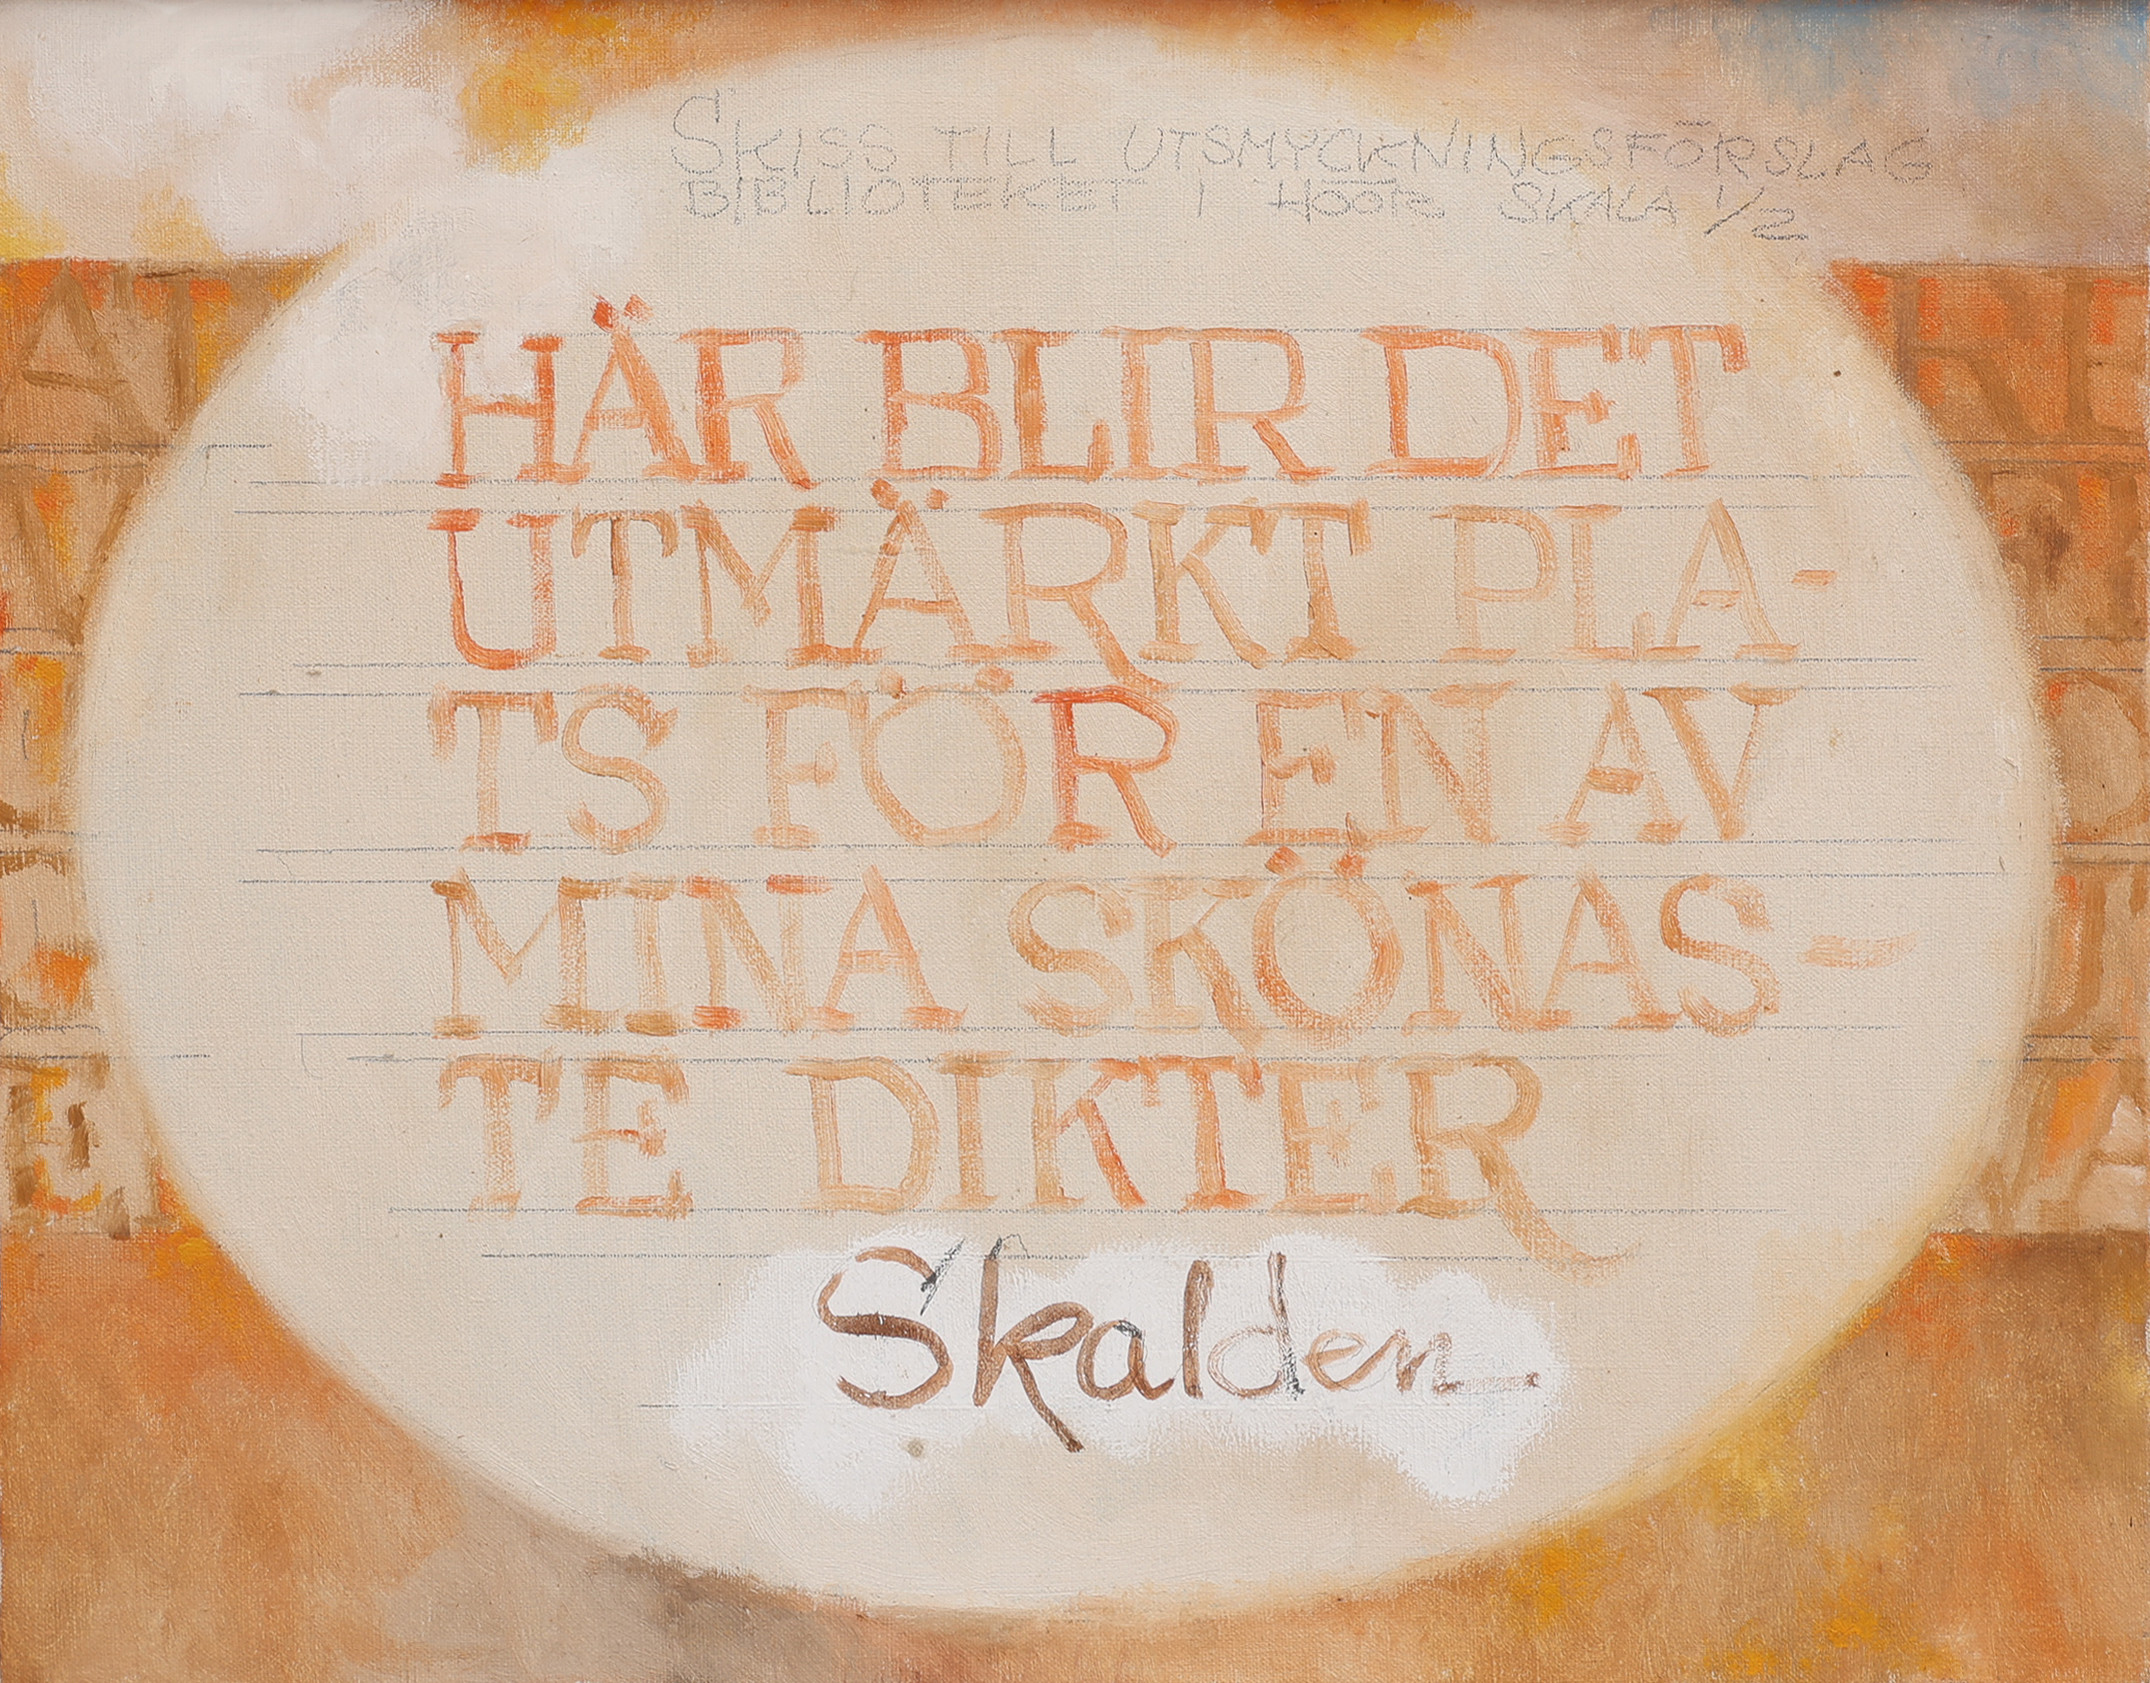 SKISS TILL UTSMYCKNINGSFÖRSLAG
BIBLIOTEKET I HÖÖR SKALA 1/2
HÄR BLIR DET
UTMÄRKT PLA-
TS FÖR EN AV
MINA SKÖNAS-
TE DIKTER
Skalden